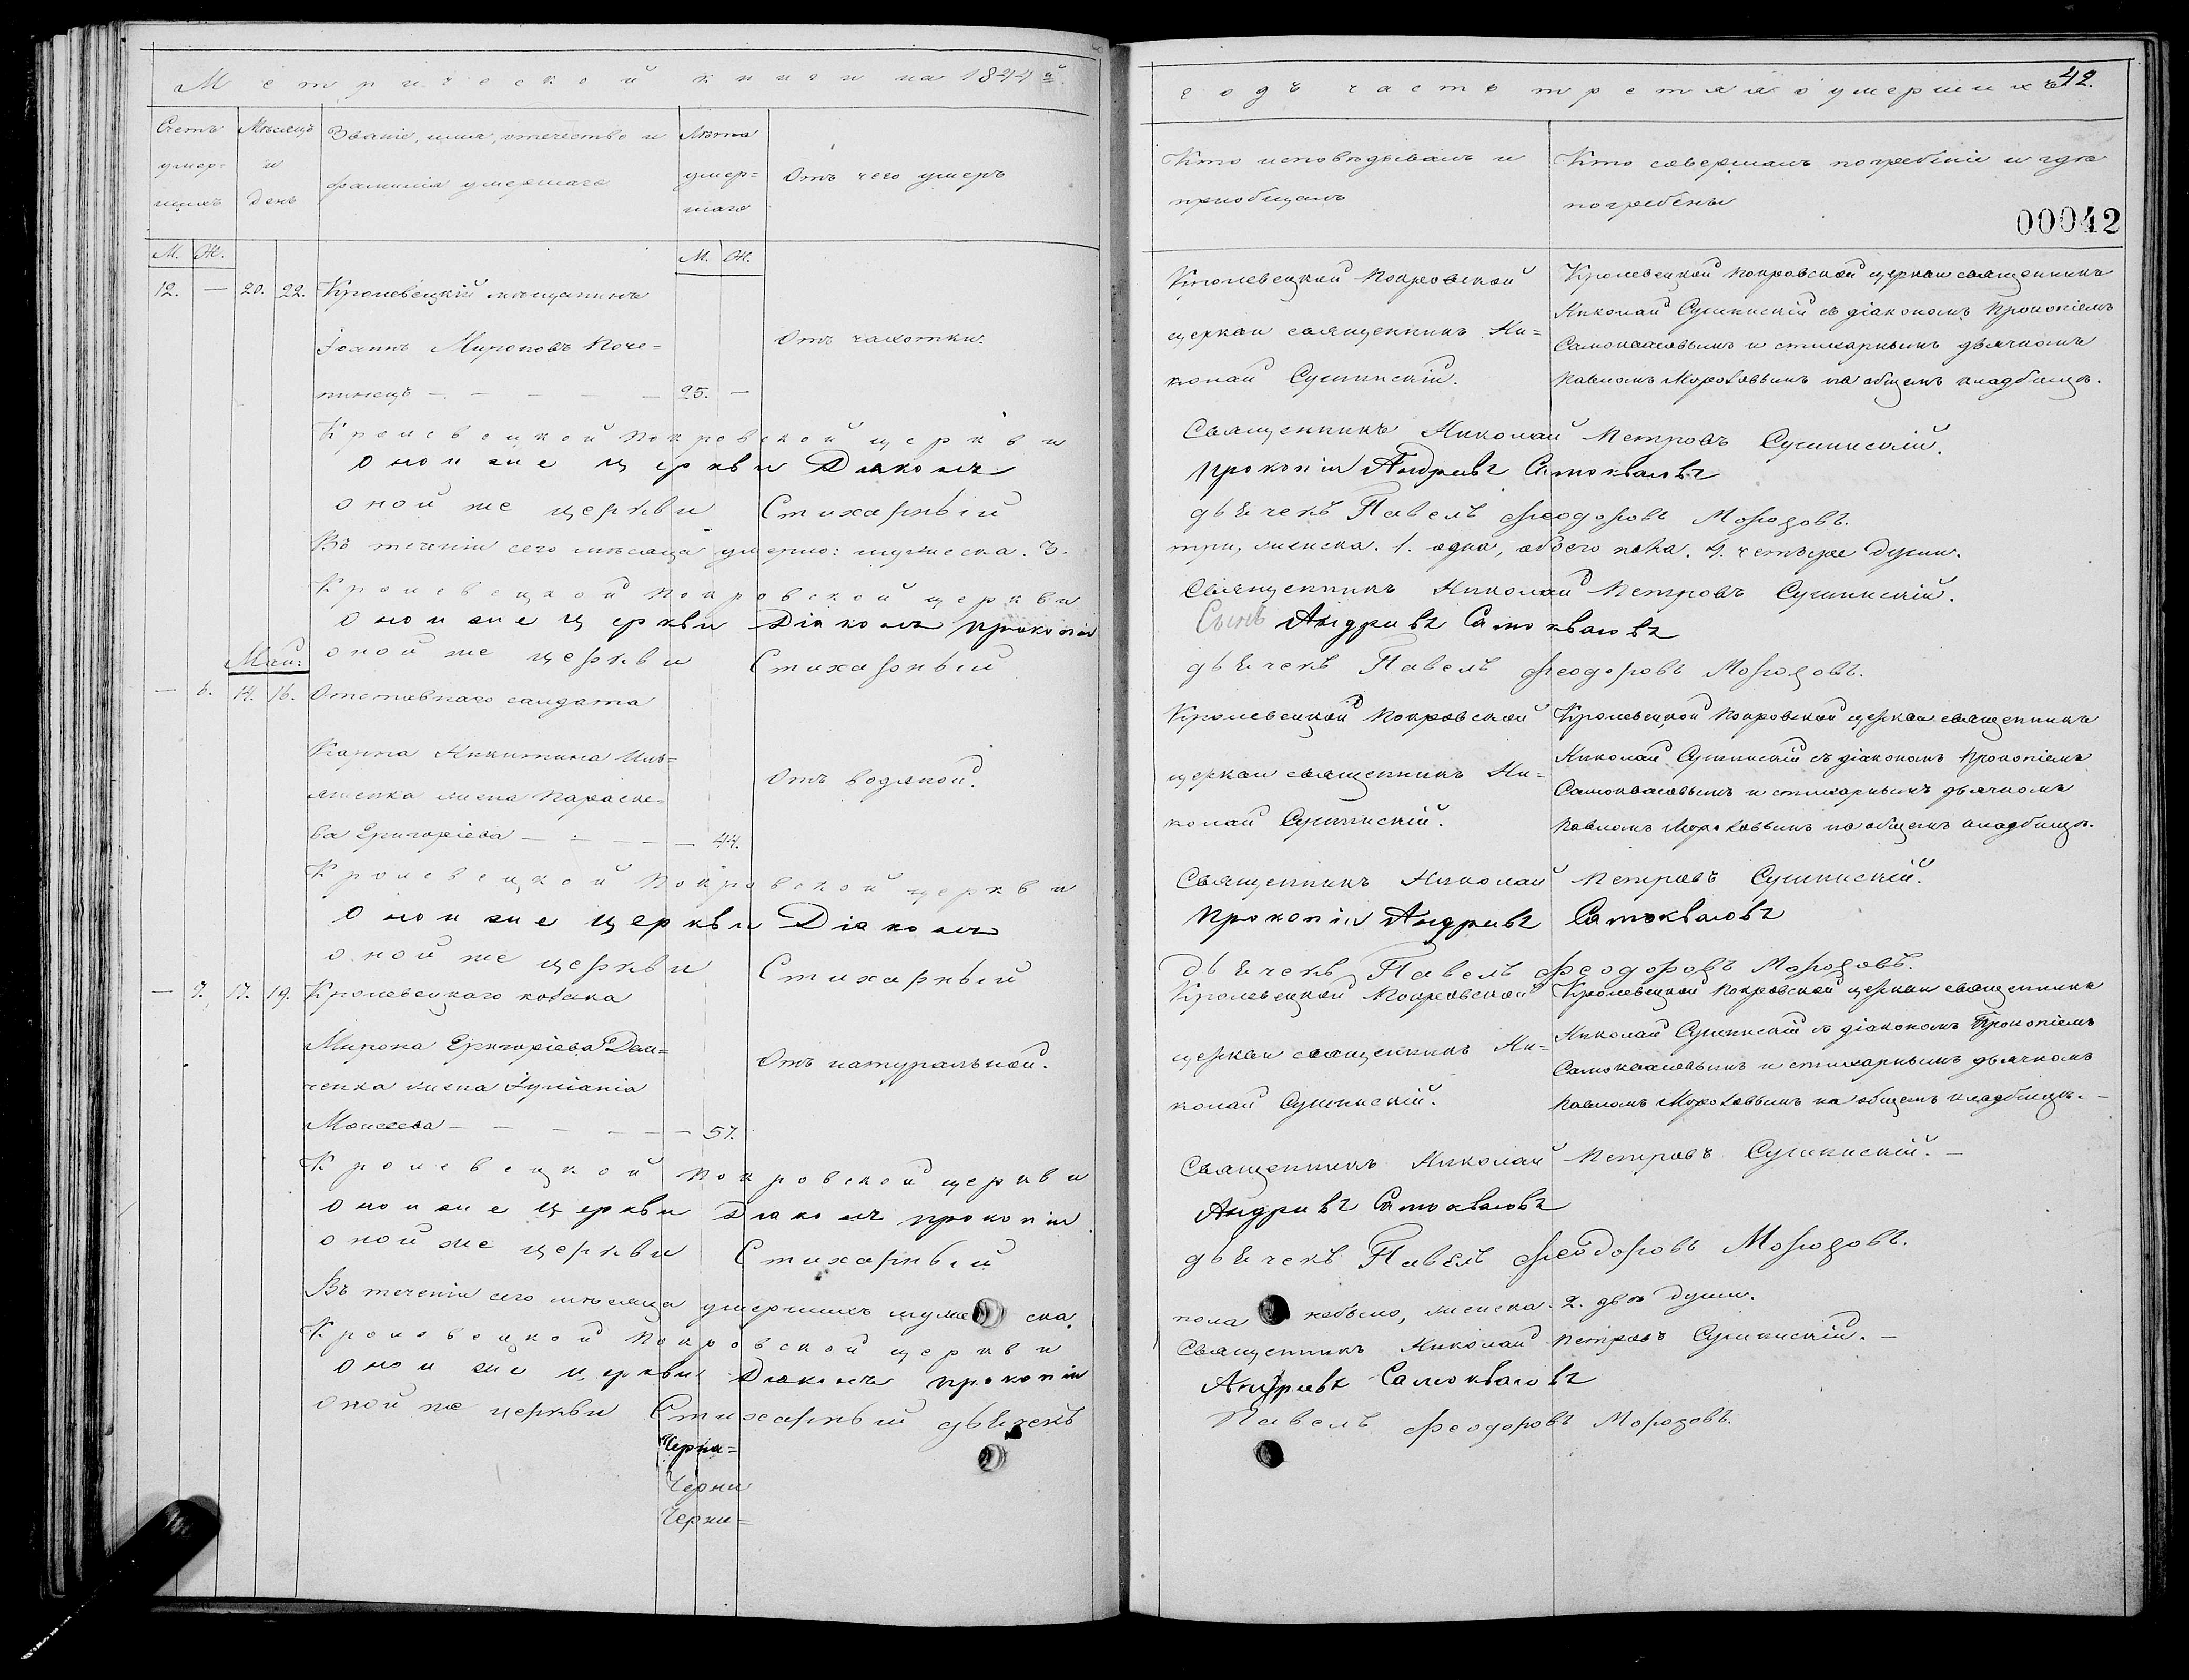 Метрической книги на 1844й.
годъ часть третяя о умершихъ
42.
Счетъ умер=шихъ
Мѣсяцъ и день
Званіе, имя, отечество и фамилія умершаго
Лѣта умер=шаго
Отъ чего умеръ
Кто исповѣдывалъ и приобщалъ
Кто совершалъ погребеніе и гдѣ погребены
00042
М. Ж.
М. Ж.
12. — 20. 22. Кролевецкій мѣщанинъ
Іоаннъ Мироновъ Поче=
пинецъ — — — — 25. —
Отъ чахотки.
Кролевецкой Покровской
церкви священникъ Ни=
колай Сушинскій.
Кролевецкой Покровской церкви священникъ
Николай Сушинскій съ діакономъ Прокопіемъ
Самоквасовымъ и стихарнымъ дьячкомъ
Павломъ Морозовымъ на общемъ кладбищѣ.
Кролевецкой Покровской церкви Священникъ Николай Петровъ Сушинскій.
оной же церкви Діаконъ Прокопій Андріевъ Самоквасовъ
оной же церкви Стихарный дьячекъ Павелъ Феодоровъ Морозовъ.
Въ теченіи сего мѣсяца умерло: мужеска. 3. три, женска. 1. одна, обоего пола. 4. четыре души.
Кролевецкой Покровской церкви Священникъ Николай Петровъ Сушинскій.
оной же церкви Діаконъ Прокопій Андріевъ Самоквасовъ
оной же церкви Стихарный дьячекъ Павелъ Феодоровъ Морозовъ.
Май:
— 6. 14. 16. Отставнаго салдата
Карпа Никитина
жена Параске=
ва Григоріева — — — — 44.
Отъ водяной.
Кролевецкой Покровской
церкви священникъ Ни=
колай Сушинскій.
Кролевецкой Покровской церкви священникъ
Николай Сушинскій съ діакономъ Прокопіемъ
Самоквасовымъ и стихарнымъ дьячкомъ
Павломъ Морозовымъ на общемъ кладбищѣ.
Кролевецкой Покровской церкви Священникъ Николай Петровъ Сушинскій.
оной же церкви Діаконъ Прокопій Андріевъ Самоквасовъ
оной же церкви Стихарный дьячекъ Павелъ Феодоровъ Морозовъ.
— 7. 17. 19. Кролевецкаго козака
Мирона Григоріева Дем=
ченка жена Іуліанія
Моисеева — — — — — 57.
Отъ натуральной.
Кролевецкой Покровской
церкви священникъ Ни=
колай Сушинскій.
Кролевецкой Покровской церкви священникъ
Николай Сушинскій съ діакономъ Прокопіемъ
Самоквасовымъ и стихарнымъ дьячкомъ
Павломъ Морозовымъ на общемъ кладбищѣ. —
Кролевецкой Покровской церкви Священникъ Николай Петровъ Сушинскій. —
оной же церкви Діаконъ Прокопій Андріевъ Самоквасовъ
оной же церкви Стихарный дьячекъ Павелъ Феодоровъ Морозовъ.
Въ теченіи сего мѣсяца умершихъ мужеска пола небыло, женска. 2. двѣ души.
Кролевецкой Покровской церкви Священникъ Николай Петровъ Сушинскій. —
оной же церкви Діаконъ Прокопій Андріевъ Самоквасовъ
оной же церкви Стихарный дьячекъ Павелъ Феодоровъ Морозовъ.
Черни=
Черни
Черни=